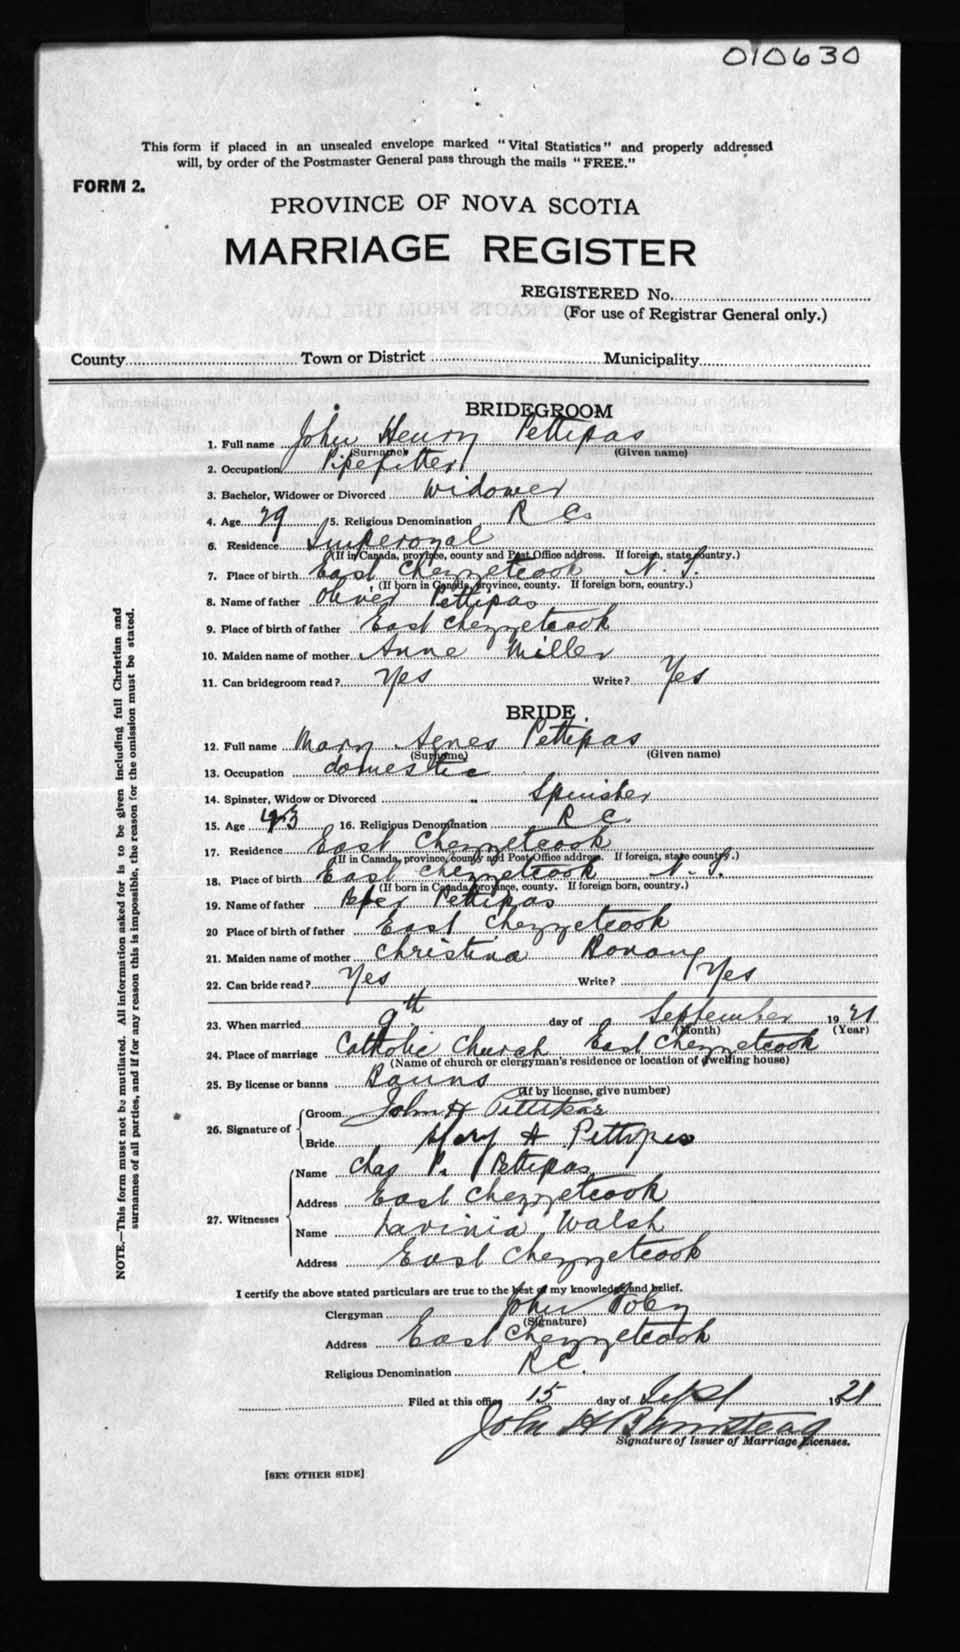 010630
This form if placed in an unsealed envelope marked "Vital Statistics" and properly addressed
will, by order of the Postmaster General pass through the mails "FREE."
FORM 2.
PROVINCE OF NOVA SCOTIA
MARRIAGE REGISTER
REGISTERED No.
(For use of Registrar General only.)
County Town or District Municipality
BRIDEGROOM
1. Full name John Henry Pettipas
(Surname) (Given name)
2. Occupation Pipefitter
3. Bachelor, Widower or Divorced Widower
4. Age 29 5. Religious Denomination R C.
6. Residence Imperoyal
(If in Canada, province, county and Post Office address. If foreign, state country.)
7. Place of birth East Chezzetcook N. S.
(If born in Canada, province, county. If foreign born, country.)
8. Name of father Oliver Pettipas
9. Place of birth of father East Chezzetcook
10. Maiden name of mother Anne Miller
11. Can bridegroom read? Yes Write? Yes
BRIDE
12. Full name Mary Agnes Pettipas
(Surname) (Given name)
13. Occupation domestic
14. Spinster, Widow or Divorced Spinster
15. Age 23 16. Religious Denomination R C.
17. Residence East Chezzetcook
(If in Canada, province, county and Post Office address. If foreign, state country.)
18. Place of birth East Chezzetcook N. S.
(If born in Canada, province, county. If foreign born, country.)
19. Name of father Peter Pettipas
20 Place of birth of father East Chezzetcook
21. Maiden name of mother Christina Bonang
22. Can bride read? Yes Write? Yes
23. When married 9th day of September 1921
(Month) (Year)
24. Place of marriage Catholic Church East Chezzetcook
(Name of church or clergyman's residence or location of dwelling house)
25. By license or banns Banns
(If by license, give number)
26. Signature of Groom John H Pettipas
Bride Mary A Pettipas
27. Witnesses Name Chas P. Pettipas
Address East Chezzetcook
Name Lavinia Walsh
Address East Chezzetcook
I certify the above stated particulars are true to the best of my knowledge and belief.
Clergyman John
(Signature)
Address East Chezzetcook
Religious Denomination R C.
Filed at this office 15 day of Sept 1921
John H
Signature of Issuer of Marriage Licenses.
[SEE OTHER SIDE]
NOTE.—This form must not be mutilated. All information asked for is to be given including full Christian and
surnames of all parties, and if for any reason this is impossible, the reason for the omission must be stated.